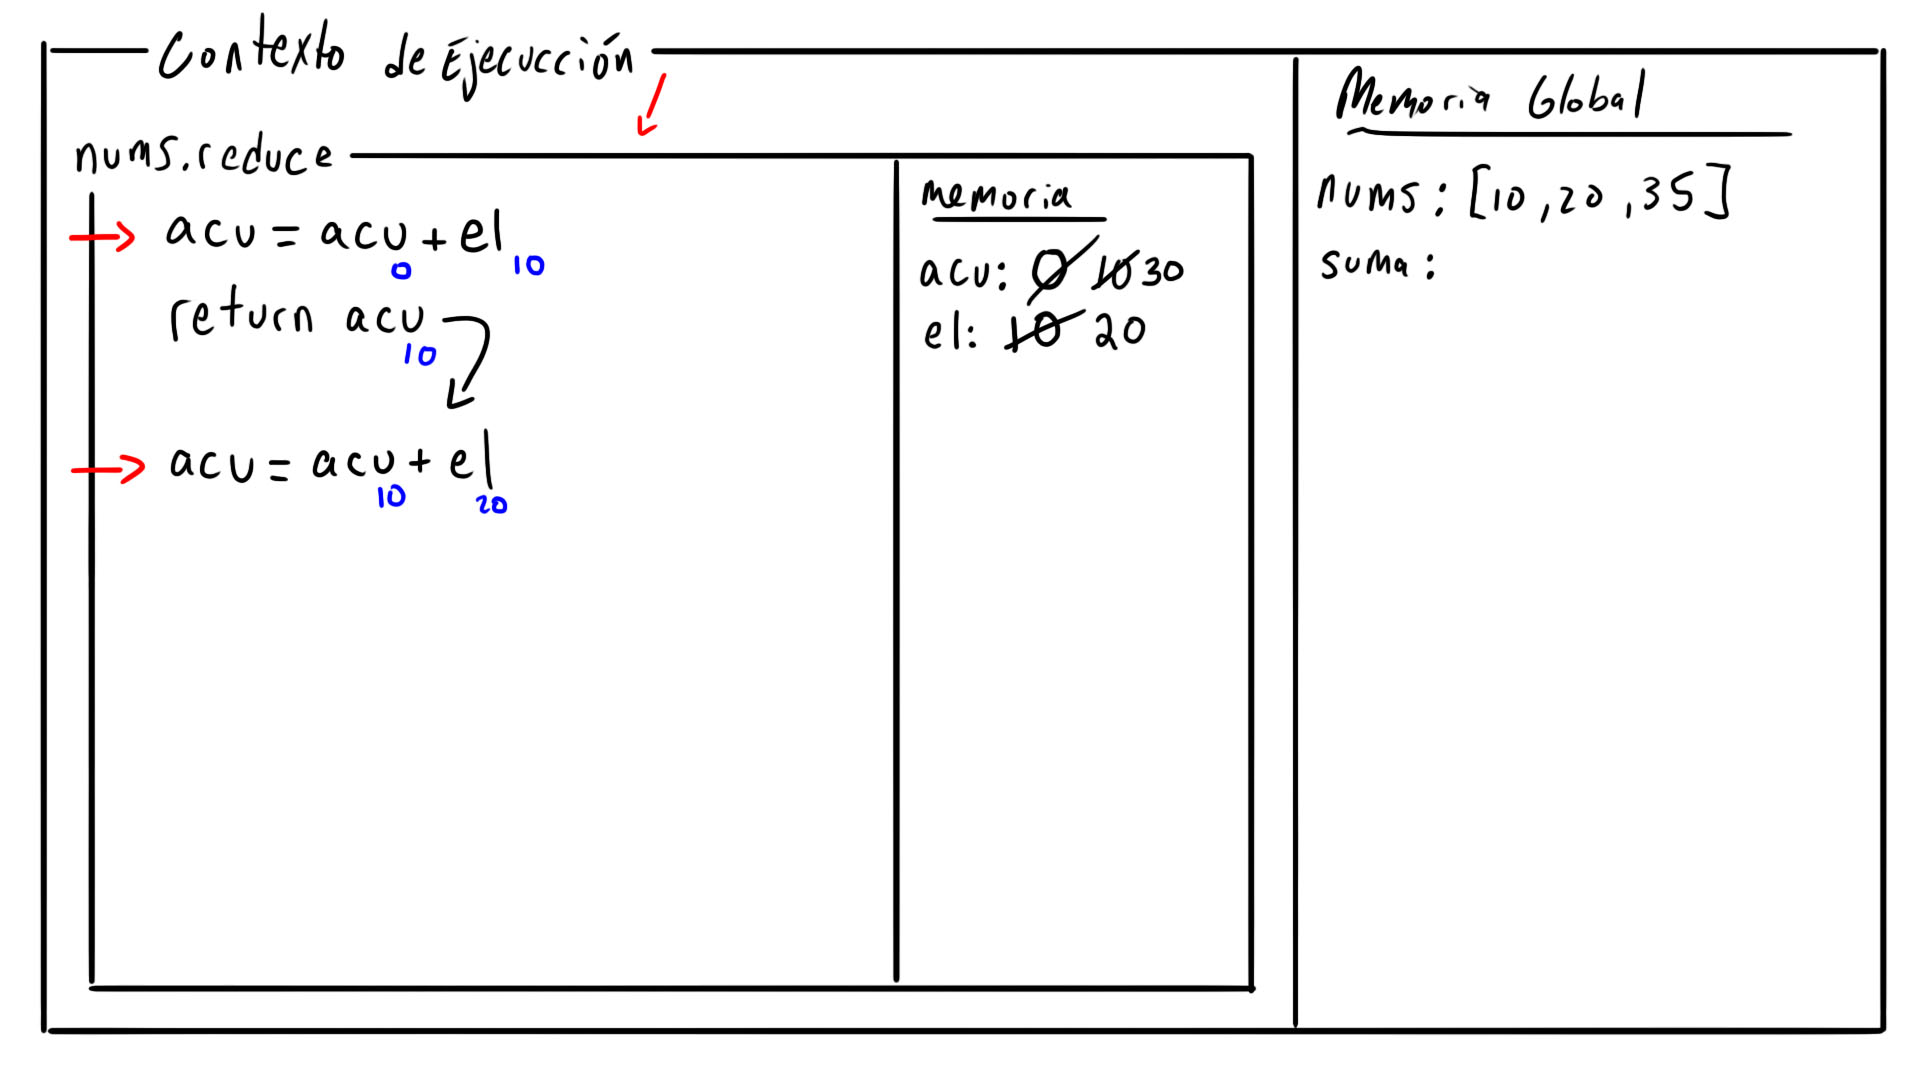 Contexto de Ejecucción
nums.reduce
acu = acu + el
0 10
return acu
10
acu = acu + el
10 20
memoria
acu: 0 10 30
el: 10 20
Memoria Global
nums: [10, 20, 35]
suma: